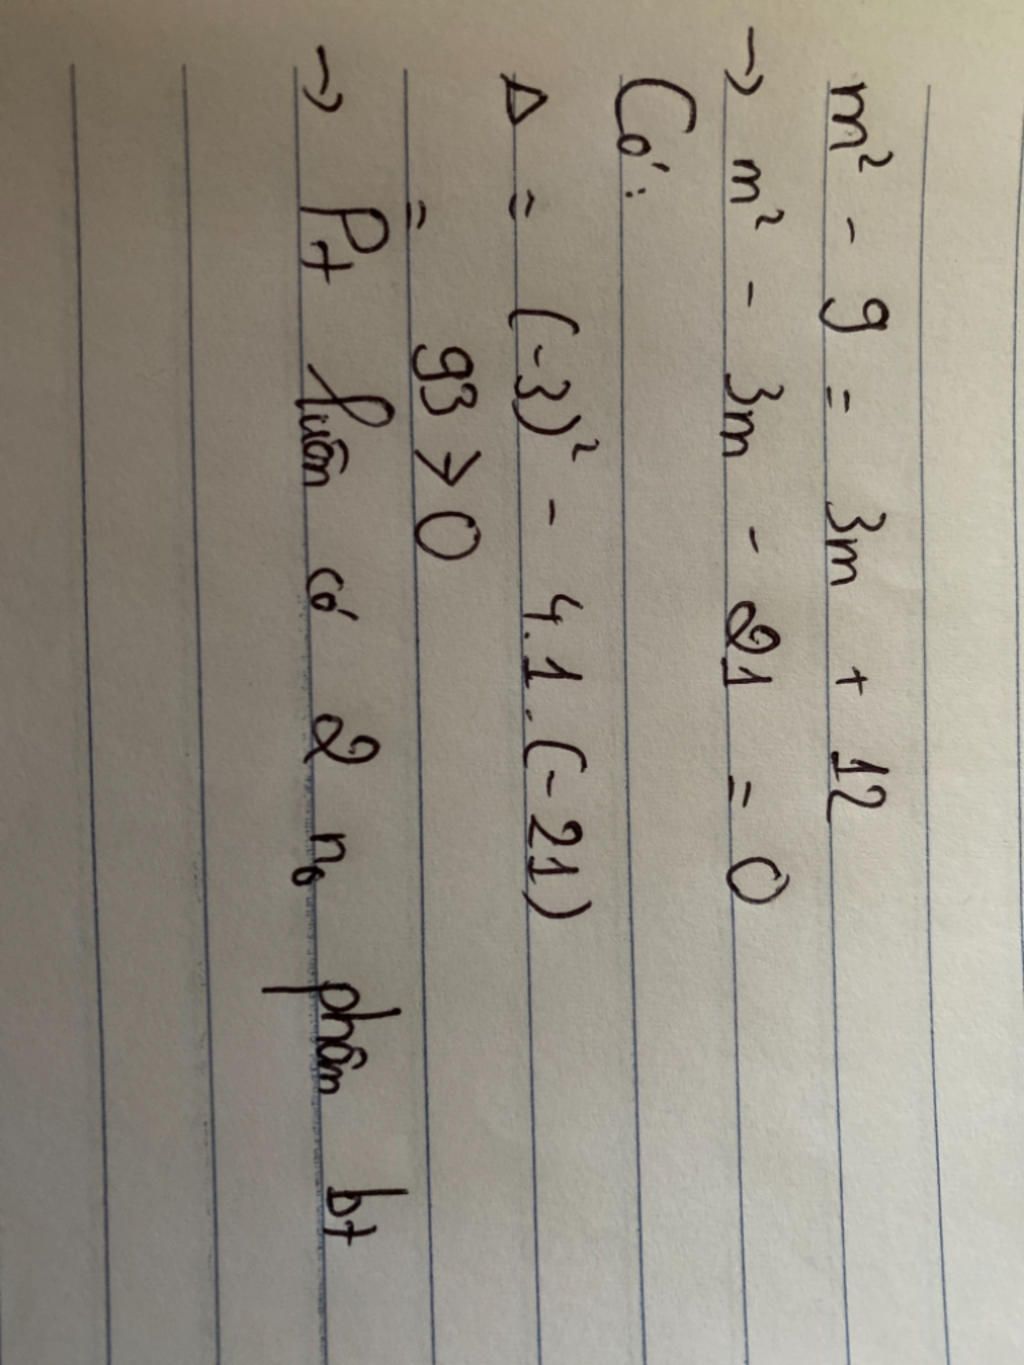 m² - 9 = 3m + 12
→ m² - 3m - 21 = 0
Có:
Δ = (-3)² - 4.1.(-21)
= 93 > 0
→ Pt luôn có 2 no phân bt